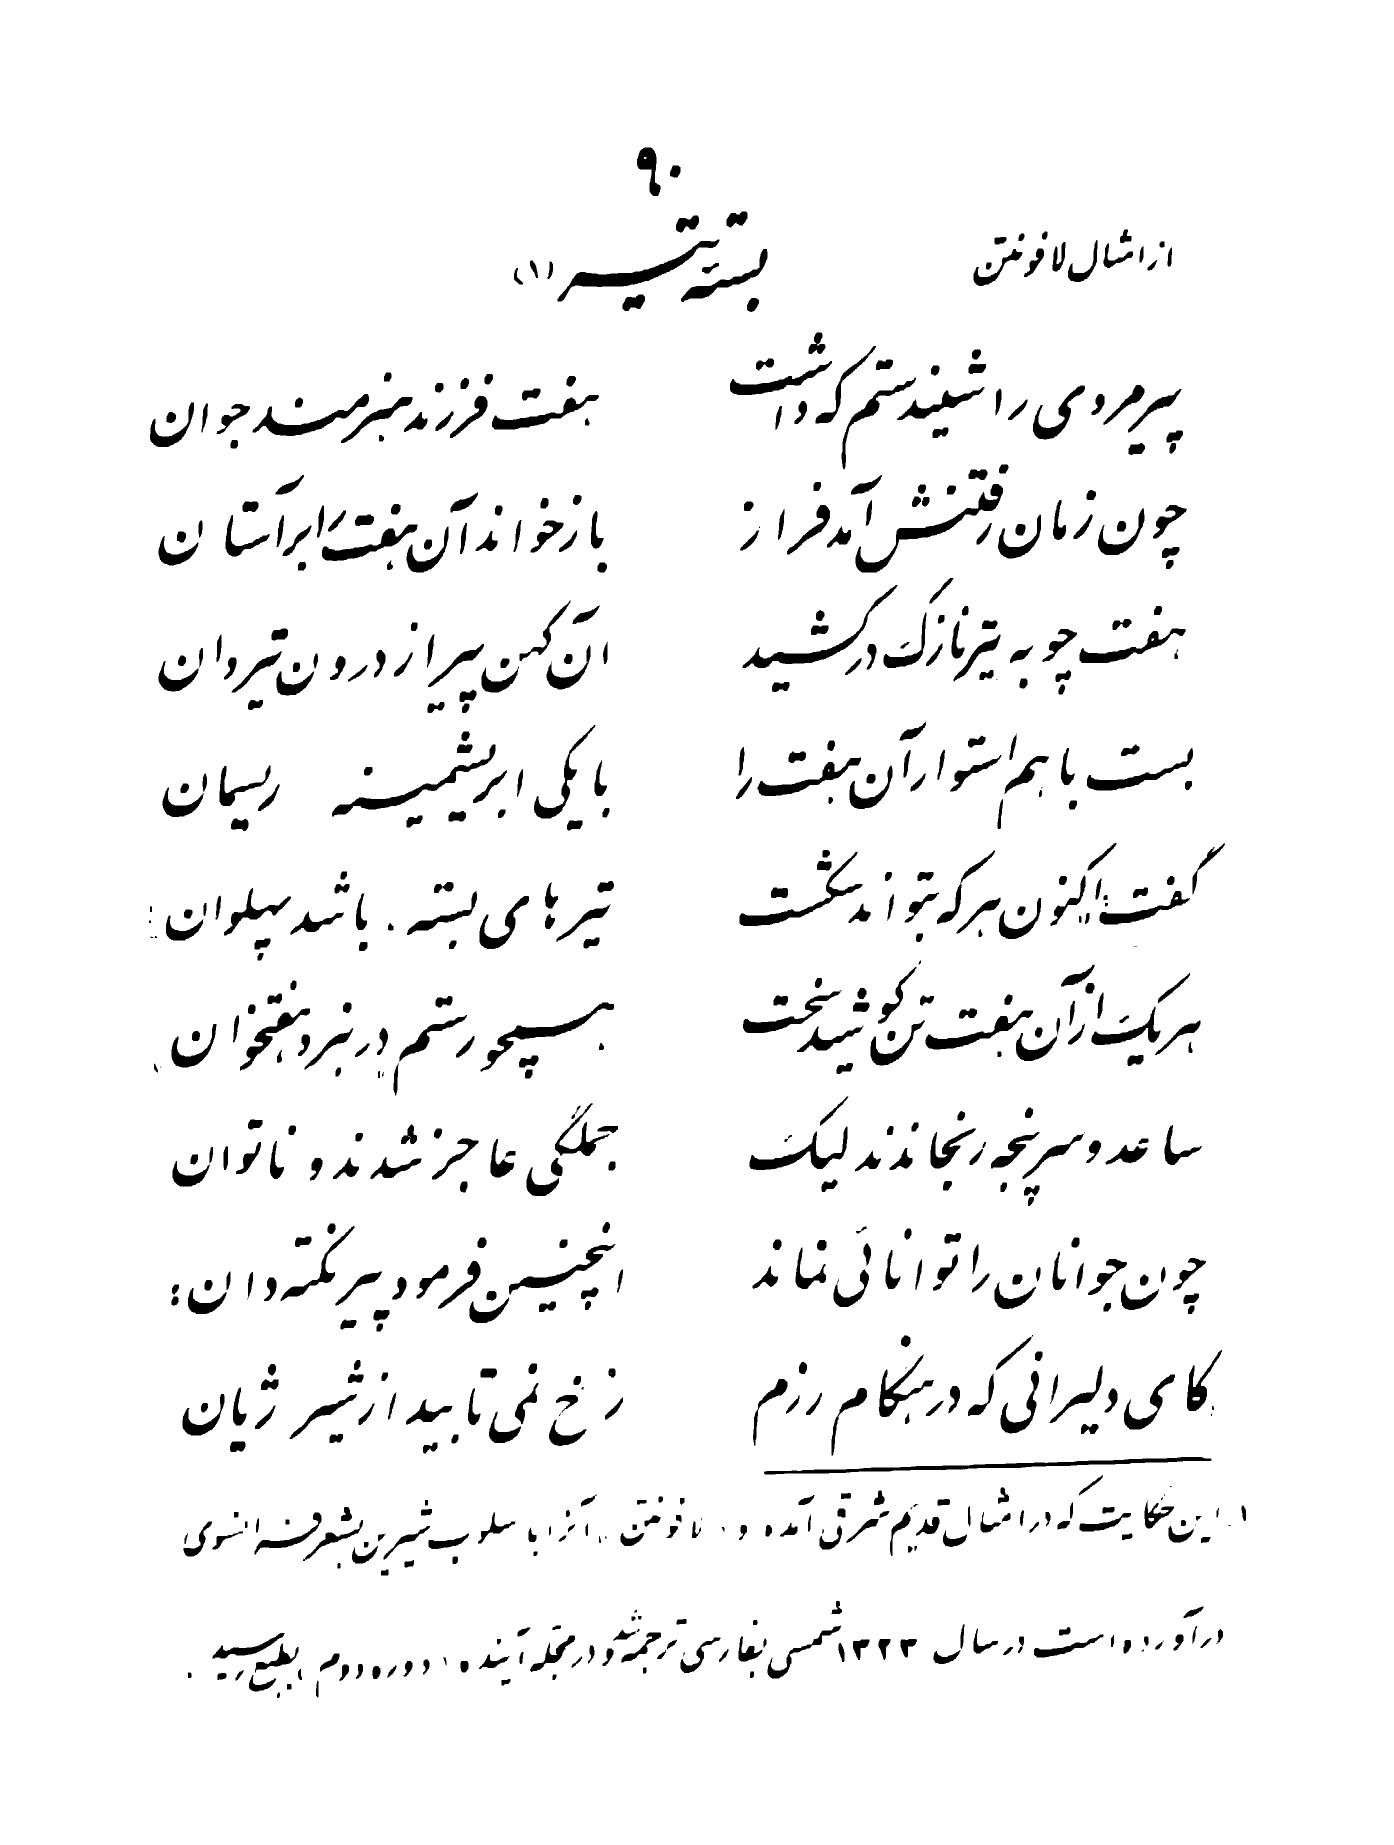 ۹۰
از امثال لافونتن
بستهٔ تیر (۱)
پیرمردی را شنیدستم که داشت هفت فرزند هنرمند جوان
چون زمان رفتنش آمد فراز بازخواند آن هفت را بر آستان
هفت چوبه تیر نازک درکشید آن کهن پیر از درون تیردان
بست باهم استوار آن هفت را با یکی ابریشمینه ریسمان
گفت: اکنون هر که بتواند شکست تیرهای بسته . باشد پهلوان
هر یک از آن هفت تن کوشید سخت همچو رستم در نبرد هفتخوان
ساعد و سرپنجه رنجاندند لیک جملگی عاجز شدند و ناتوان
چون جوانان را توانائی نماند اینچنین فرمود پیر نکته دان :
کای دلیرانی که در هنگام رزم رخ نمی تابید از شیر ژیان
۱. این حکایت که در امثال قدیم شرق آمده و «لافونتن» آنرا با سلوب شیرین بشعر فرانسوی
درآورده است در سال ۱۳۲۳ شمسی بفارسی ترجمه شد و در مجله آینده «دوره دوم» بطبع رسید .